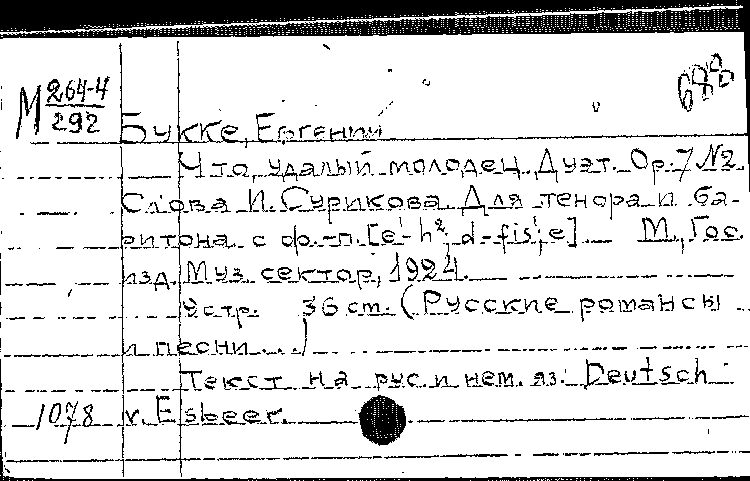 688
М 264-4
292
Букке, Евгений
Что, удалый молодец. Дуэт. Op. 7 №2.
Слова И. Сурикова. Для тенора и ба-
ритона с ф.-п. [e¹-h², d-fis¹; e] М., Гос.
изд. Муз. сектор, 1924.
9 стр. 36 cm. (Русские романсы
и песни...)
Текст на рус. и нем. яз. Deutsch
1078 v. Elsbeer.